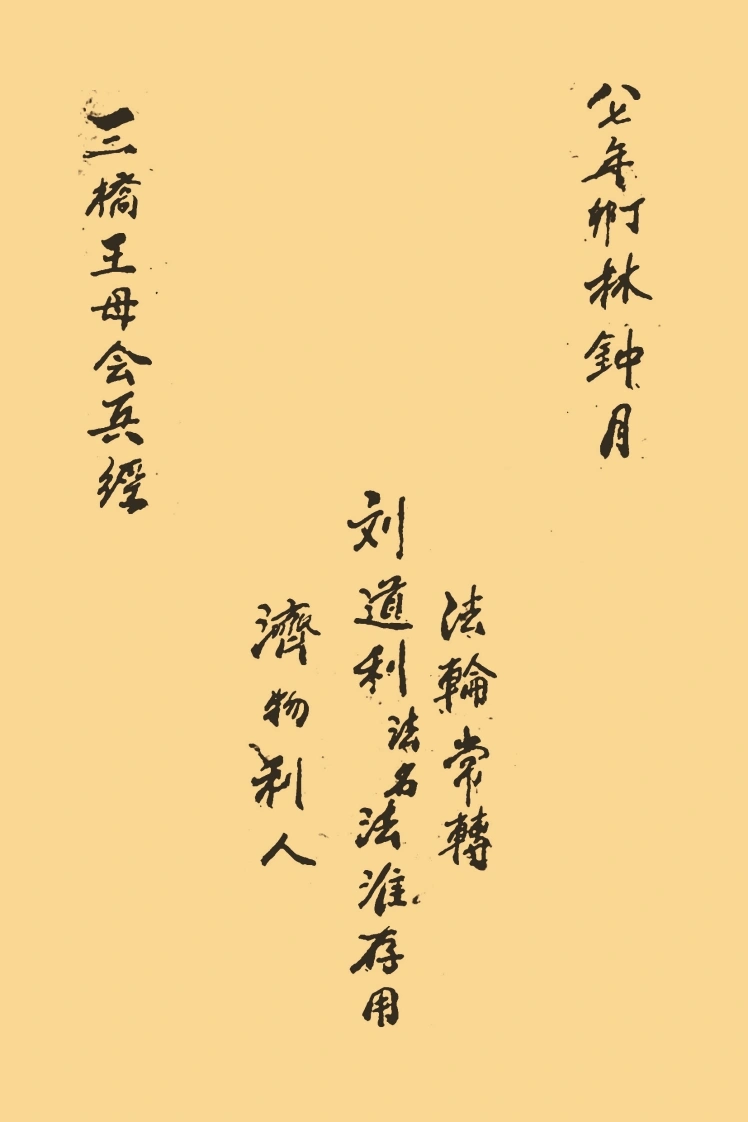 八七年丁卯林鈡月
法輪常轉
刘道利法名法淮存用
濟物利人
三橋王母会兵經